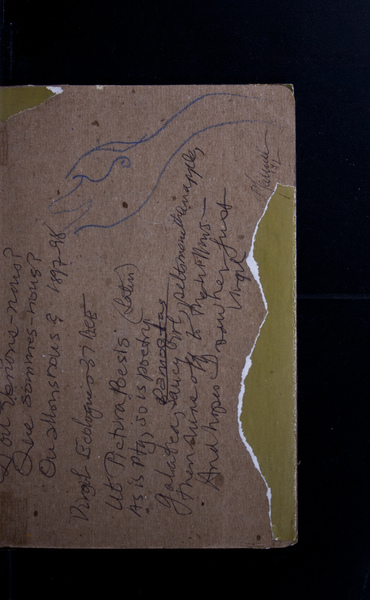 D'où venons-nous?
Que sommes-nous?
Où allons nous? 1897-98
Virgil Ecologues 37 BCE
Ut Pictura Poesis (Latin)
As is Ptg, so is poetry
Galatea, saucy girl, pelts me with an apple,
then runs off to the willows—
And hopes I saw her first
Virgil